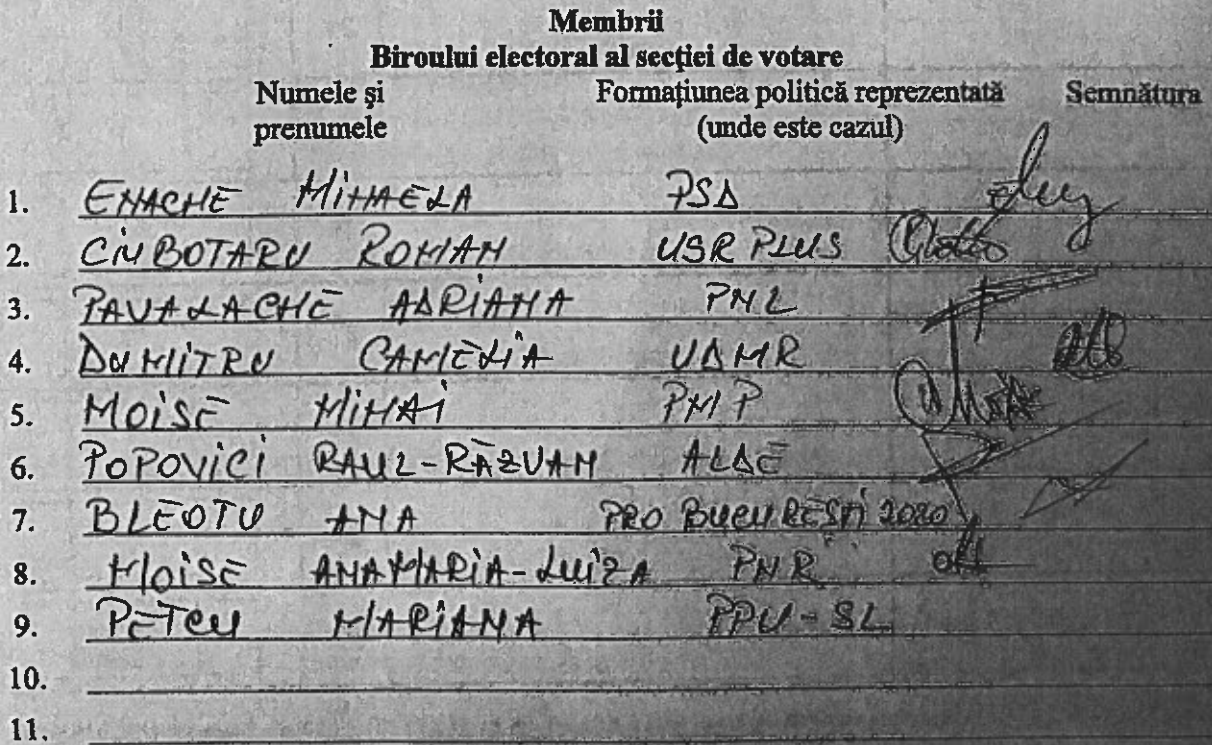 Membrii
Biroului electoral al secției de votare
Numele și prenumele Formațiunea politică reprezentată (unde este cazul) Semnătura
1. ENACHE MIHAELA PSD
2. CIUBOTARU ROMAN USR PLUS
3. PAVALACHE ADRIANA PNL
4. DUMITRU CAMELIA UDMR
5. MOISE MIHAI PMP
6. POPOVICI RAUL-RĂZVAN ALDE
7. BLEOTU ANA PRO BUCUREȘTI 2020
8. MOISE ANAMARIA-LUIZA PNR
9. PETCU MARIANA PPU-SL
10.
11.